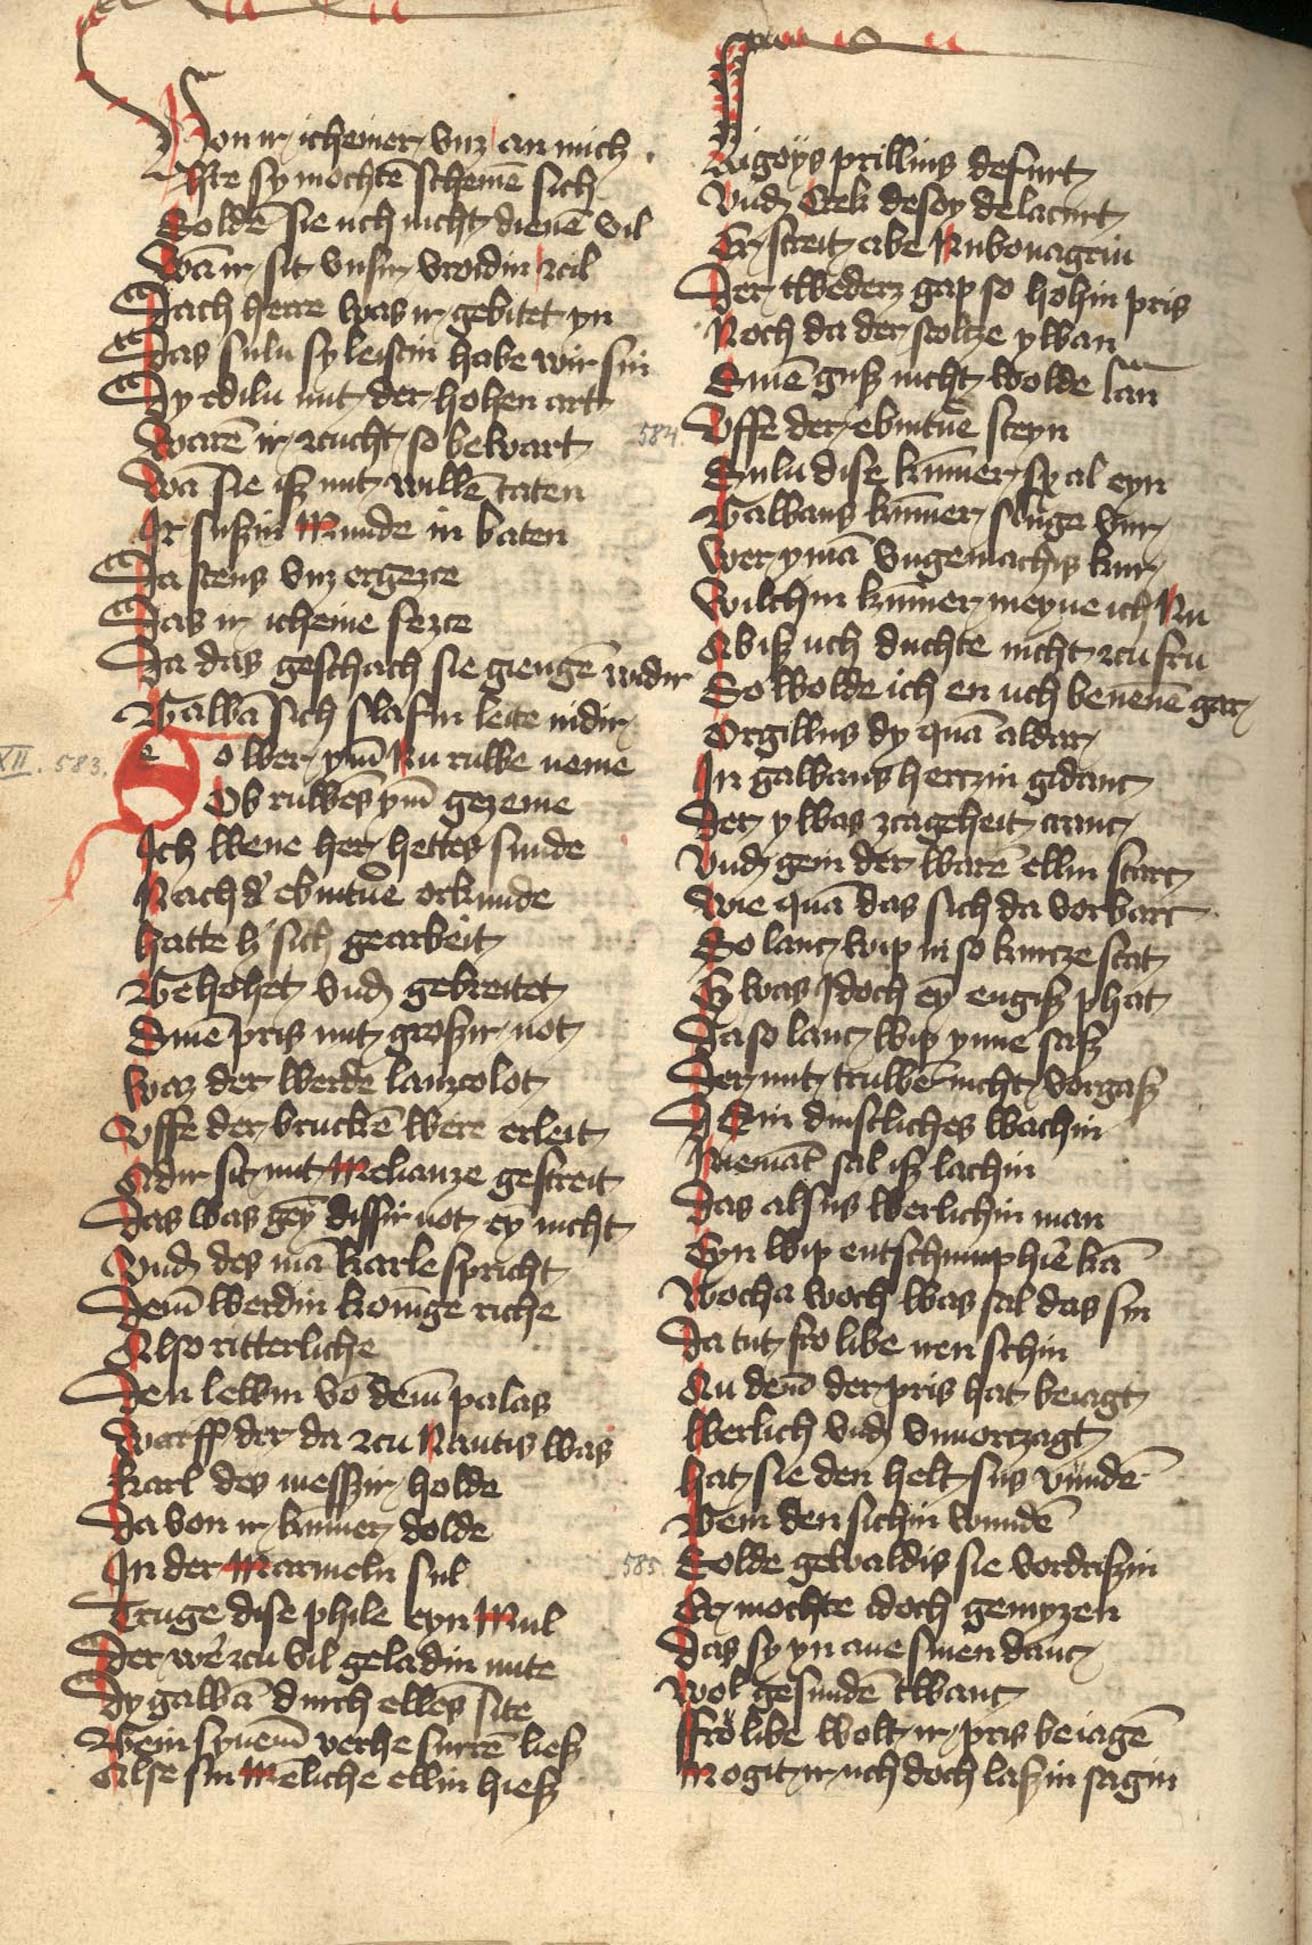 Von ir icheiner vnz an mich
Alse sy mochtē schemē sich
Soldē sie uch nicht dienē vil
Wā ir sit vnsir vroidin zcil
Dach herre was ir gebitet yn
Das sulu sy leistin habe wir sin
Dy edilu mit der hohen art
Warē ir zcucht so bewart
Wā sie isz mit willē taten
Ir suszin Munde in baten
Da stens vnz ergezce
Das ir icheine sezce
Da das geschach sie giengē widir
Gawā sich slafin leite nidir
XII. 583.
Swer ym̄ Nu ruwe neme
Ob ruwēs ym̄ gezeme
Ich wene her hettes sunde
Nach d' ebintuͤe orkunde
Hatte h' sich gearbeit
Gehohet vnd gebreitet
Sinē pris mit groszir not
Waz der werde lanzcolot
Vffe der bruckē were erleit
Adir sit mit Melianze gestreit
Das was geȳ dissir not eȳ nicht
Vnd des mā karle spricht
Dem̄ werdin konīge riche
Also ritterliche
Den lewin vō dem̄ palas
Warff der da zcu Nantis was
Karl des messzir holde
Da von ir kūmer dolde
In der Marmeln sul
Truge dise phile eyn Mul
Der we' zcu vil geladin mite
Dy gawā durch ellēs site
Gein synem̄ verhe snurrē liesz
Alse sin Mēliche ellin hiesz
Ligoys prillius defurt
Vnd Erek desoy delacurt
Er streit abe Mubonagrin
Der tweders gap so hohin pris
Noch da der stoltze ywan
Sinē gusz nicht wolde lan
584.
Vffe der ebintuē steyn
Sulu dise kūmer sy al eyn
Gawans kūmer slūge vur
Wer ymā vngemachis kur
Wilchin kūmer meyne ich Nu
Ab isz uch duchte nicht zcu fru
So wolde ich en uch benenē gar
Orgillus dy quā aldar
In gawans hertzin gidanc
Der y was zcageheit cranc
Vnd gein der warē ellin starc
Wie quā das sich da vorbarc
So lanc wip in so kurtze stat
Ez was Idoch eȳ engisz phat
Da so lanc wip ynne sasz
Der mit truwē nicht vorgasz
Sin dinstliches wachin
Niemāt sal isz lachin
Das alsus werlichin man
Eyn wip entschumphiē kā
Wocha woch was sal das sin
Da tut fro libe nen schin
An dem̄ der pris hat beiagt
Werlich vnd vnuorczagt
Hat sie den helt sus vundē
Gein den sichin wundē
585.
Solde gewaldis sie vordriszin
Er mochte idoch genyzen
Das sy yn ane sinen danc
Wol gesundē twanc
Fro libe wolt ir pris beiagē
Mogit ir uch doch laszin sagin